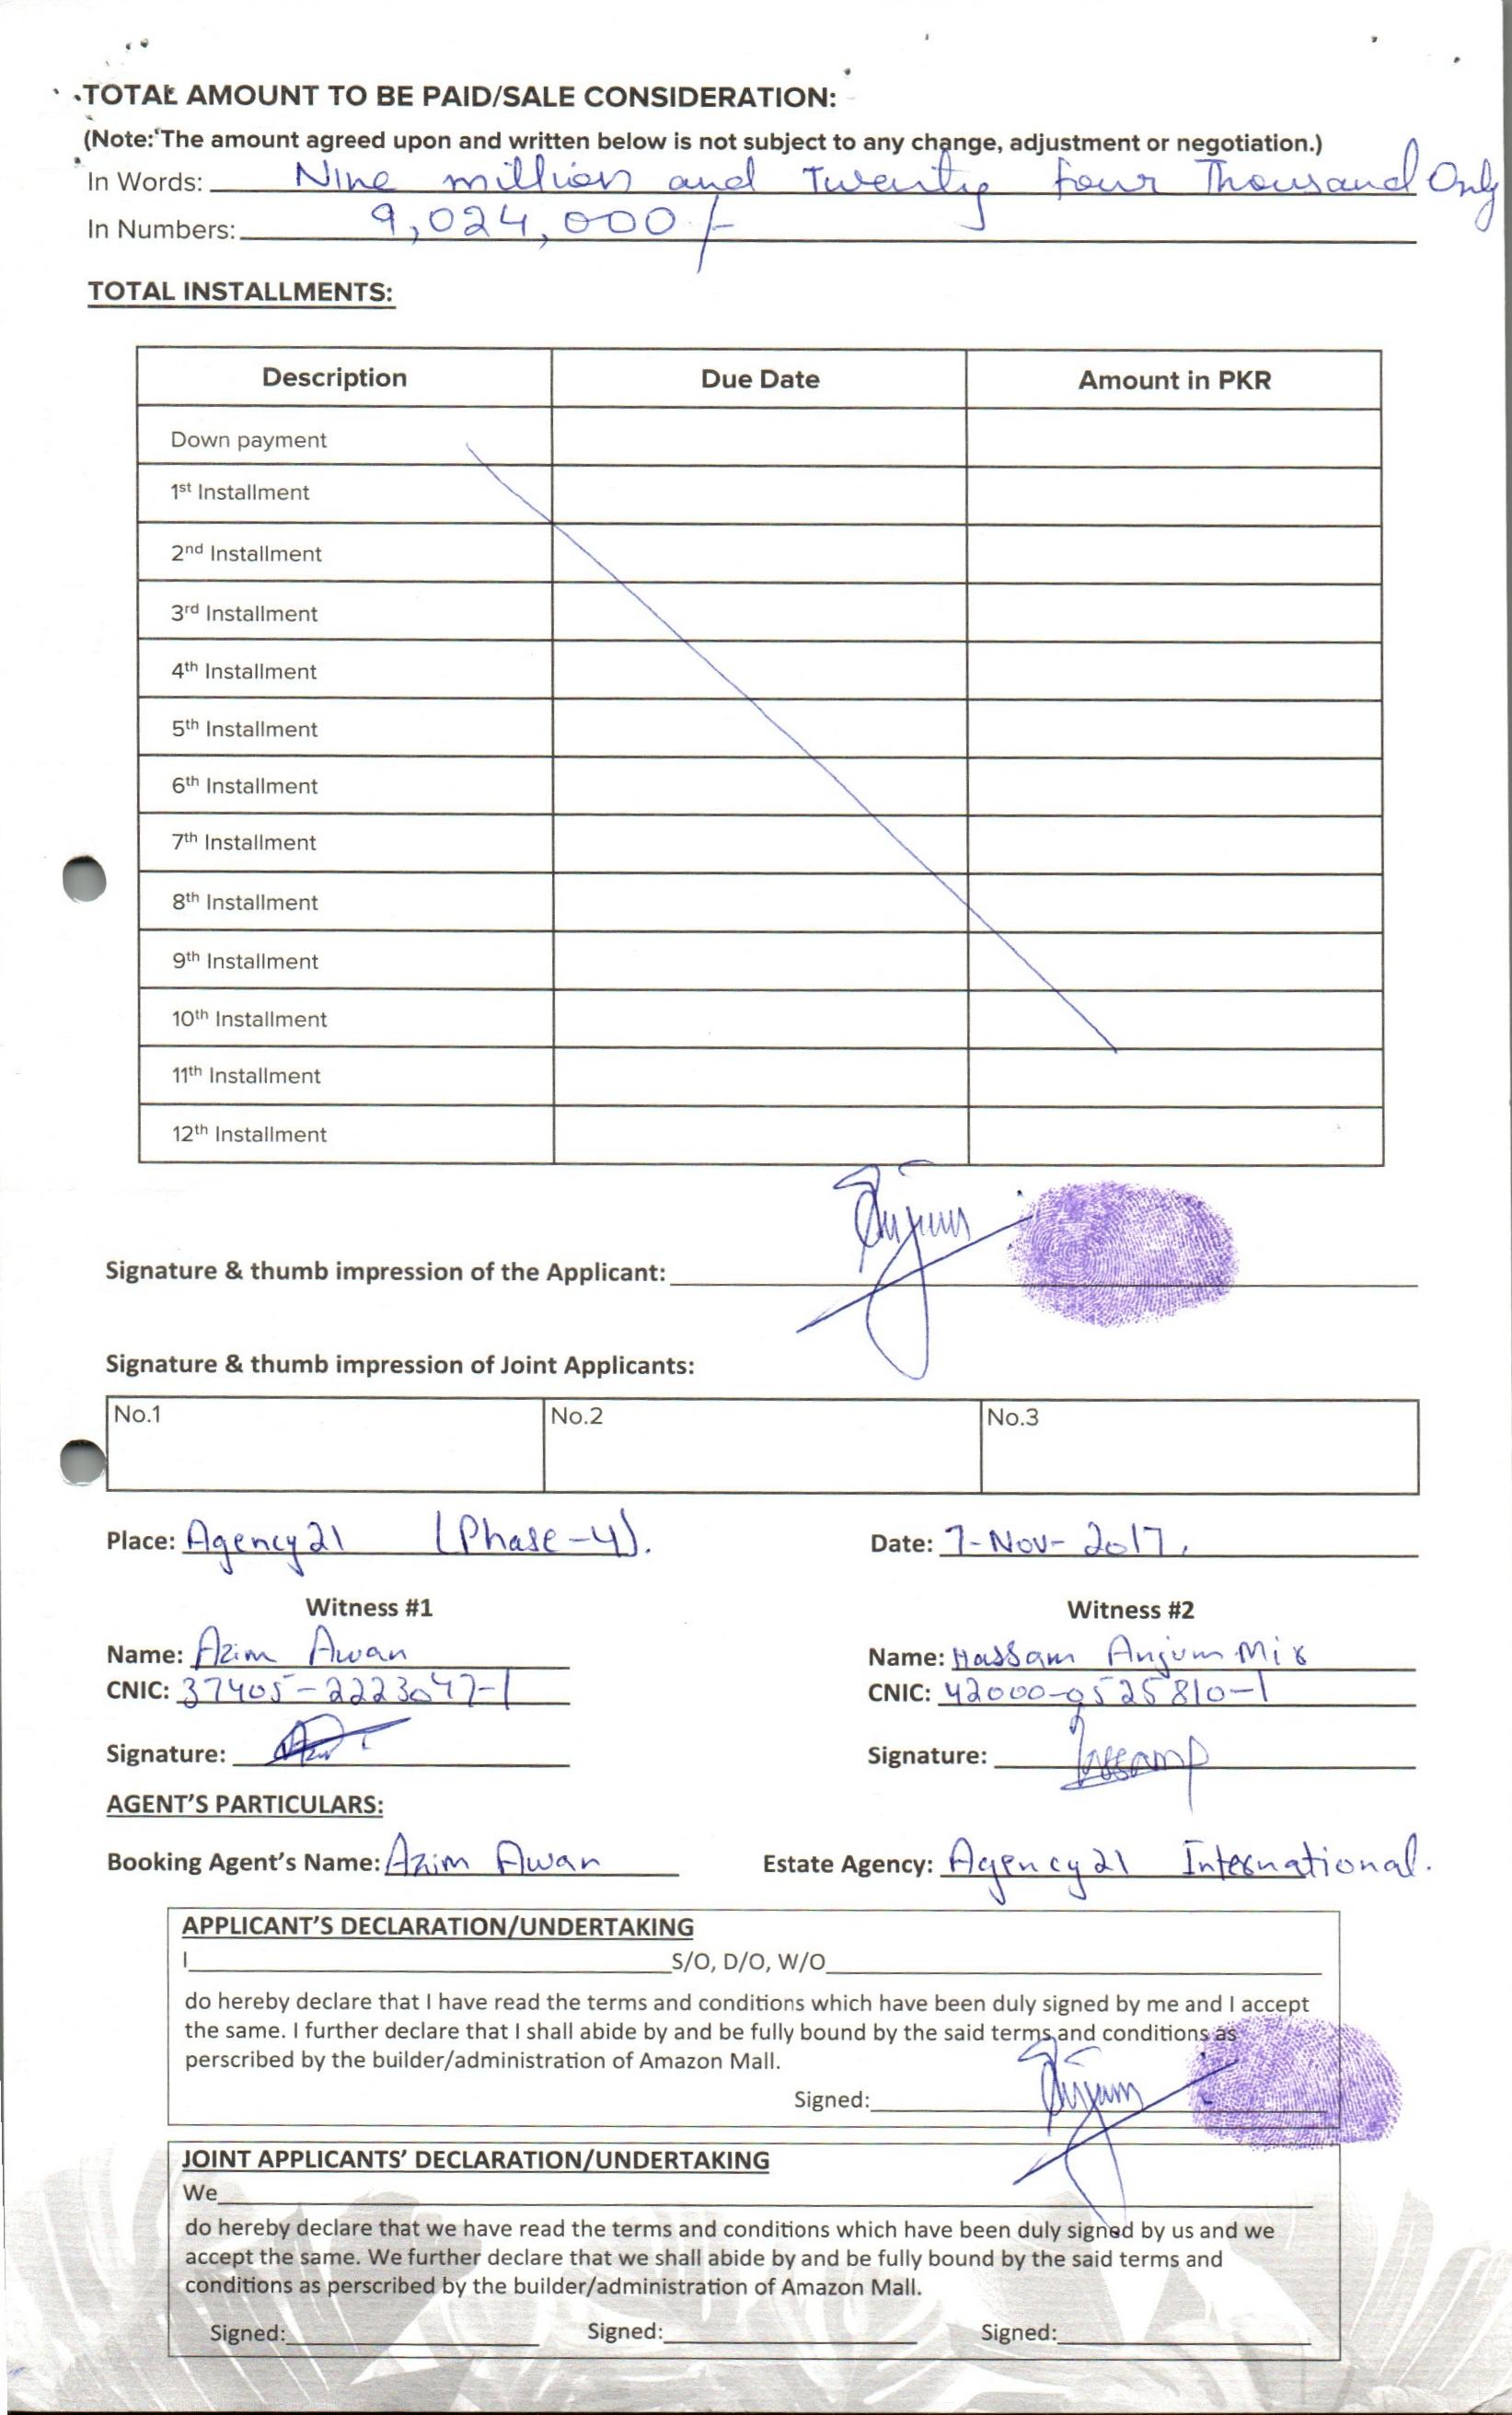 TOTAL AMOUNT TO BE PAID/SALE CONSIDERATION:
(Note: The amount agreed upon and written below is not subject to any change, adjustment or negotiation.)
In Words: Nine million and Twenty four Thousand Only
In Numbers: 9,024,000/-
TOTAL INSTALLMENTS:
Description Due Date Amount in PKR
Down payment
1st Installment
2nd Installment
3rd Installment
4th Installment
5th Installment
6th Installment
7th Installment
8th Installment
9th Installment
10th Installment
11th Installment
12th Installment
Signature & thumb impression of the Applicant: Anjum
Signature & thumb impression of Joint Applicants:
No.1 No.2 No.3
Place: Agency21 (Phase-4). Date: 7-Nov-2017.
Witness #1 Witness #2
Name: Azim Awan Name: Hassam Anjum Mir
CNIC: 37405-2223047-1 CNIC: 42000-0525810-1
Signature: Signature:
AGENT'S PARTICULARS:
Booking Agent's Name: Azim Awan Estate Agency: Agency21 International.
APPLICANT'S DECLARATION/UNDERTAKING
I S/O, D/O, W/O
do hereby declare that I have read the terms and conditions which have been duly signed by me and I accept
the same. I further declare that I shall abide by and be fully bound by the said terms and conditions as
perscribed by the builder/administration of Amazon Mall.
Signed: Anjum
JOINT APPLICANTS' DECLARATION/UNDERTAKING
We
do hereby declare that we have read the terms and conditions which have been duly signed by us and we
accept the same. We further declare that we shall abide by and be fully bound by the said terms and
conditions as perscribed by the builder/administration of Amazon Mall.
Signed: Signed: Signed: